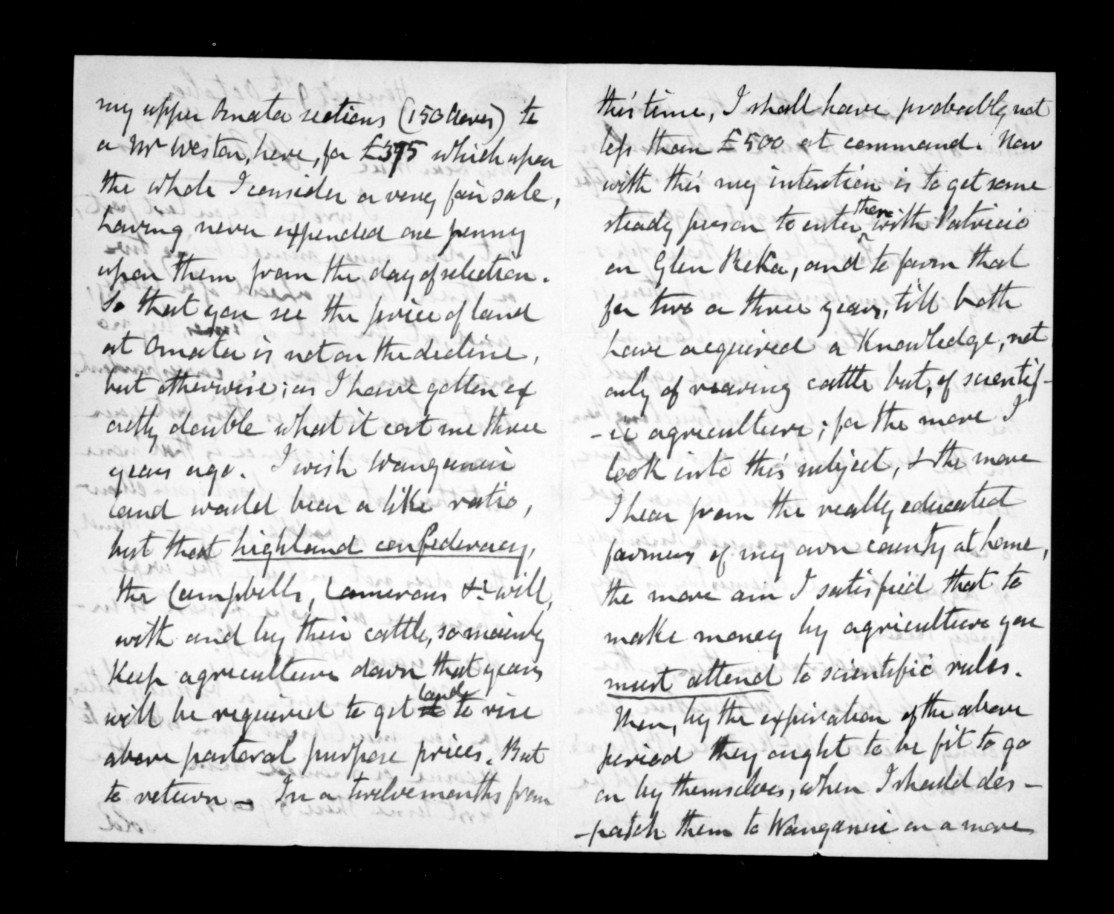 my upper Omata sections (150 Acres) to
a Mr Weston, here, for £395 which upon
the whole I consider a very fair sale,
having never expended one penny
upon them from the day of selection.
So that you see the price of land
at Omata is not on the decline,
but otherwise; as I have gotten ex
actly double what it cost me three
years ago. I wish Wanganui
land would bear a like ratio,
but that highland confederacy,
the Campbells, Camerons &c will,
with and by their cattle, so mainly
keep agriculture down that years
will be required to get land to rise
above pastoral purpose prices. But
to return – In a twelvemonths from
this time, I shall have probably not
less than £500 at command. Now
with this my intention is to get some
steady person to enter there with Patricio
on Glen Reka, and to farm that
for two or three years, till both
have acquired a knowledge, not
only of rearing cattle but, of scientif-
-ic agriculture; for the more I
look into this subject, & the more
I hear from the really educated
farmers of my own county at home,
the more am I satisfied that to
make money by agriculture you
must attend to scientific rules.
Then, by the expiration of the above
period they ought to be fit to go
on by themselves, when I should des-
-patch them to Wanganui on a more